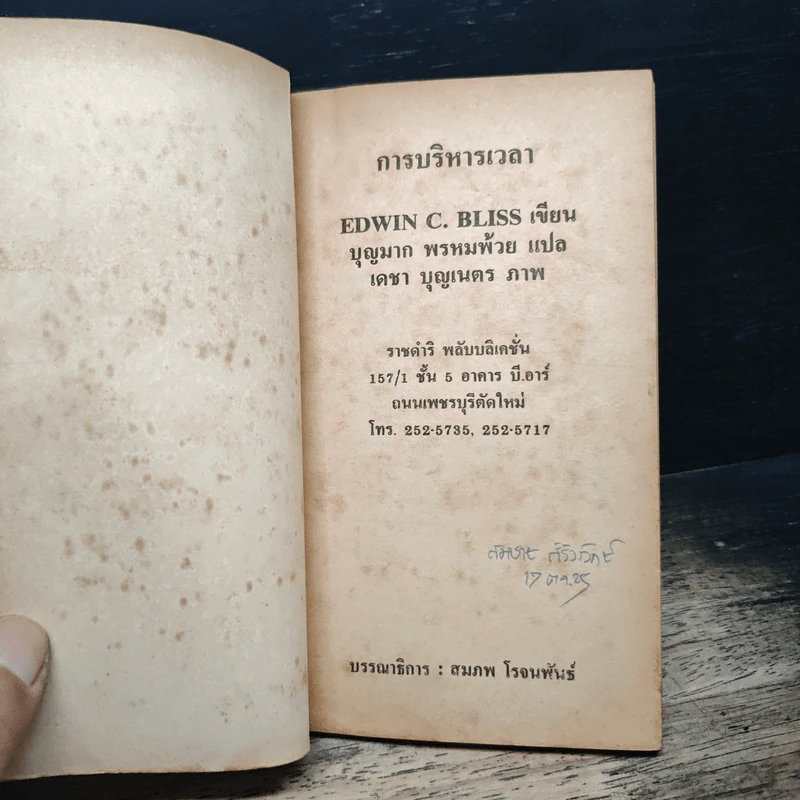 การบริหารเวลา
EDWIN C. BLISS เขียน
บุญมาก พรหมพ้วย แปล
เดชา บุญเนตร ภาพ
ราชดำริ พลับบลิเคชั่น
157/1 ชั้น 5 อาคาร บี.อาร์
ถนนเพชรบุรีตัดใหม่
โทร. 252-5735, 252-5717
สมชาย
17 ตค.25
บรรณาธิการ : สมภพ โรจนพันธ์